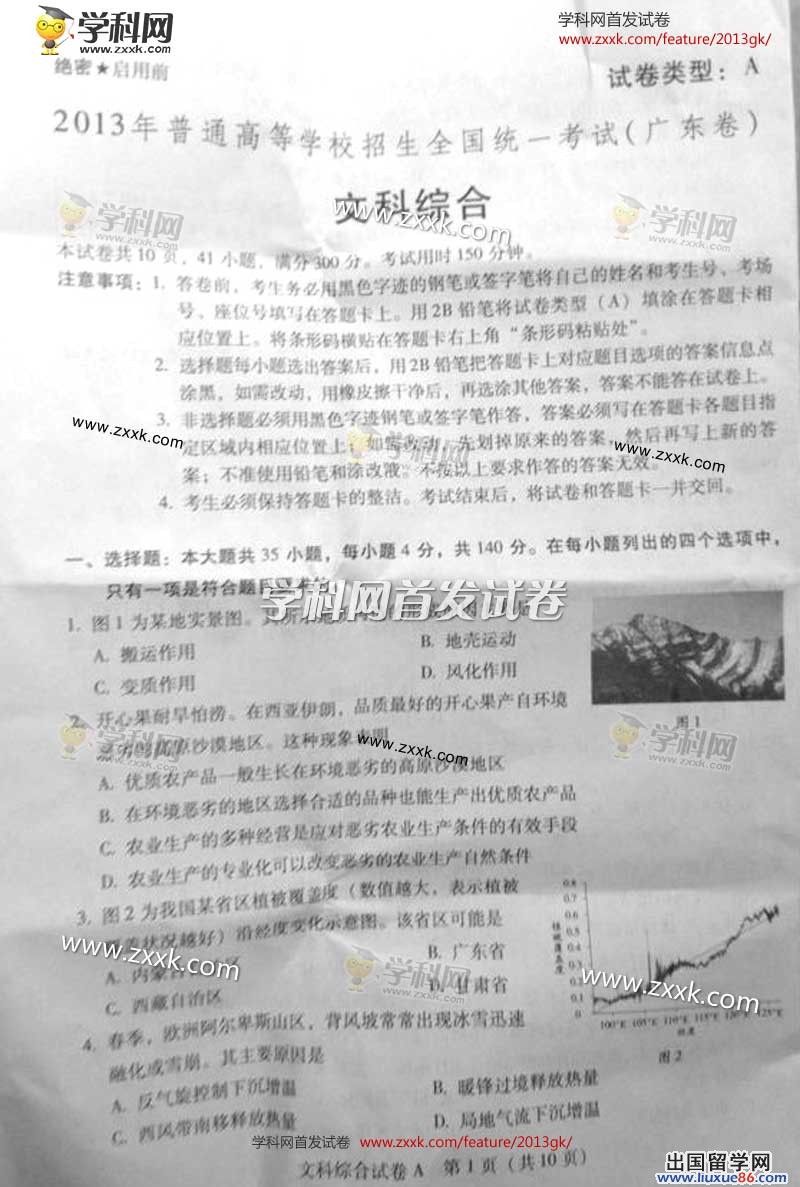 学科网
www.zxxk.com
学科网首发试卷
www.zxxk.com/feature/2013gk/
绝密★启用前
试卷类型：A
2013年普通高等学校招生全国统一考试（广东卷）
学科网
www.zxxk.com
文科综合
www.zxxk.com
学科网
www.zxxk.com
本试卷共10页，41小题，满分300分。考试用时150分钟。
注意事项：1. 答卷前，考生务必用黑色字迹的钢笔或签字笔将自己的姓名和考生号、考场
号、座位号填写在答题卡上。用2B铅笔将试卷类型（A）填涂在答题卡相
应位置上。将条形码横贴在答题卡右上角“条形码粘贴处”。
2. 选择题每小题选出答案后，用2B铅笔把答题卡上对应题目选项的答案信息点
涂黑，如需改动，用橡皮擦干净后，再选涂其他答案，答案不能答在试卷上。
3. 非选择题必须用黑色字迹钢笔或签字笔作答，答案必须写在答题卡各题目指
定区域内相应位置上；如需改动，先划掉原来的答案，然后再写上新的答
案；不准使用铅笔和涂改液。不按以上要求作答的答案无效。
4. 考生必须保持答题卡的整洁。考试结束后，将试卷和答题卡一并交回。
www.zxxk.com
学科网
www.zxxk.com
一、选择题：本大题共35小题，每小题4分，共140分。在每小题列出的四个选项中，
只有一项是符合题目
学科网首发试卷
1. 图1为某地实景图。其所
A. 搬运作用
B. 地壳运动
C. 变质作用
D. 风化作用
图1
2. 开心果耐旱怕涝。在西亚伊朗，品质最好的开心果产自环境
原沙漠地区。这种现象表明
学科网
www.zxxk.com
www.zxxk.com
学科网
www.zxxk.com
A. 优质农产品一般生长在环境恶劣的高原沙漠地区
B. 在环境恶劣的地区选择合适的品种也能生产出优质农产品
C. 农业生产的多种经营是应对恶劣农业生产条件的有效手段
D. 农业生产的专业化可以改变恶劣的农业生产自然条件
3. 图2为我国某省区植被覆盖度（数值越大，表示植被
状况越好）沿经度变化示意图。该省区可能是
www.zxxk.com
学科网
www.zxxk.com
www.zxxk.com
A. 内蒙古
区
B. 广东省
C. 西藏自治区
D. 甘肃省
植被覆盖度
0.8
0.7
0.6
0.5
0.4
0.3
0.2
0.1
0
100°E 105°E 110°E 115°E 120°E 125°E
经度
图2
4. 春季，欧洲阿尔卑斯山区，背风坡常常出现冰雪迅速
融化或雪崩。其主要原因是
A. 反气旋控制下沉增温
B. 暖锋过境释放热量
C. 西风带南移释放热量
D. 局地气流下沉增温
学科网首发试卷 www.zxxk.com/feature/2013gk/
文科综合试卷A 第1页（共10页）
出国留学网
www.liuxue86.com